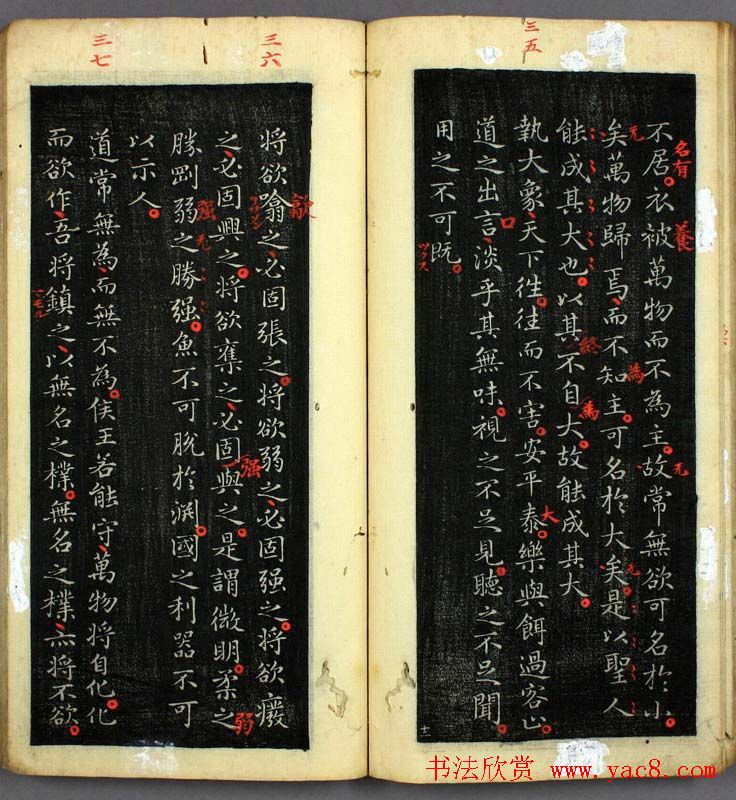 三五
不居衣被萬物而不為主故常無欲可名於小
矣萬物歸焉而不知主可名於大矣是以聖人
能成其大也以其不自大故能成其大
執大象天下往往而不害安平泰樂與餌過客止
道之出言淡乎其無味視之不足見聽之不足聞
用之不可既
名有
養
无
為
无
終
為
口
大
ツクス
十一
三六
將欲噏之必固張之將欲弱之必固强之將欲癈
之必固興之將欲奪之必固與之是謂微明柔之
勝剛弱之勝强魚不可脫於淵國之利器不可
以示人
三七
道常無為而無不為侯王若能守萬物將自化化
而欲作吾將鎮之以無名之樸無名之樸亦將不欲
歙
强
强
弱
书法欣赏 www.yac8.com